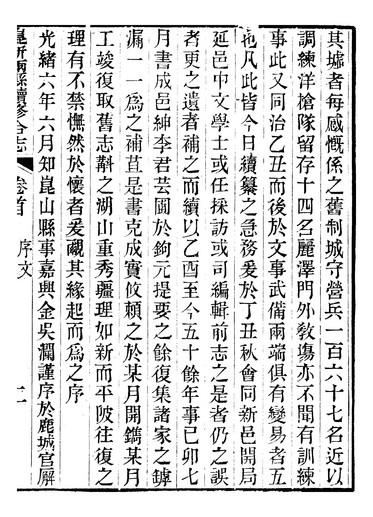 其墟者每感慨係之舊制城守營兵一百六十七名近以
調練洋槍隊留存十四名麗澤門外教塲亦不聞有訓練
事此又同治乙丑而後於文事武備兩端俱有變易者五
也凡此皆今日續纂之急務爰於丁丑秋會同新邑開局
延邑中文學士或任採訪或司編輯前志之是者仍之誤
者更之遺者補之而續以乙酉至今五十餘年事己卯七
月書成邑紳李君芸圃於鉤元提要之餘復集諸家之罅
漏一一爲之補苴是書克成實攸賴之於某月開鐫某月
工竣復取舊志斠之湖山重秀疆理如新而平陂往復之
理有不禁憮然於懷者爰覼其緣起而爲之序
光緖六年六月知崑山縣事嘉興金吳瀾謹序於鹿城官廨
崑新兩縣續修合志
卷首
序文
二